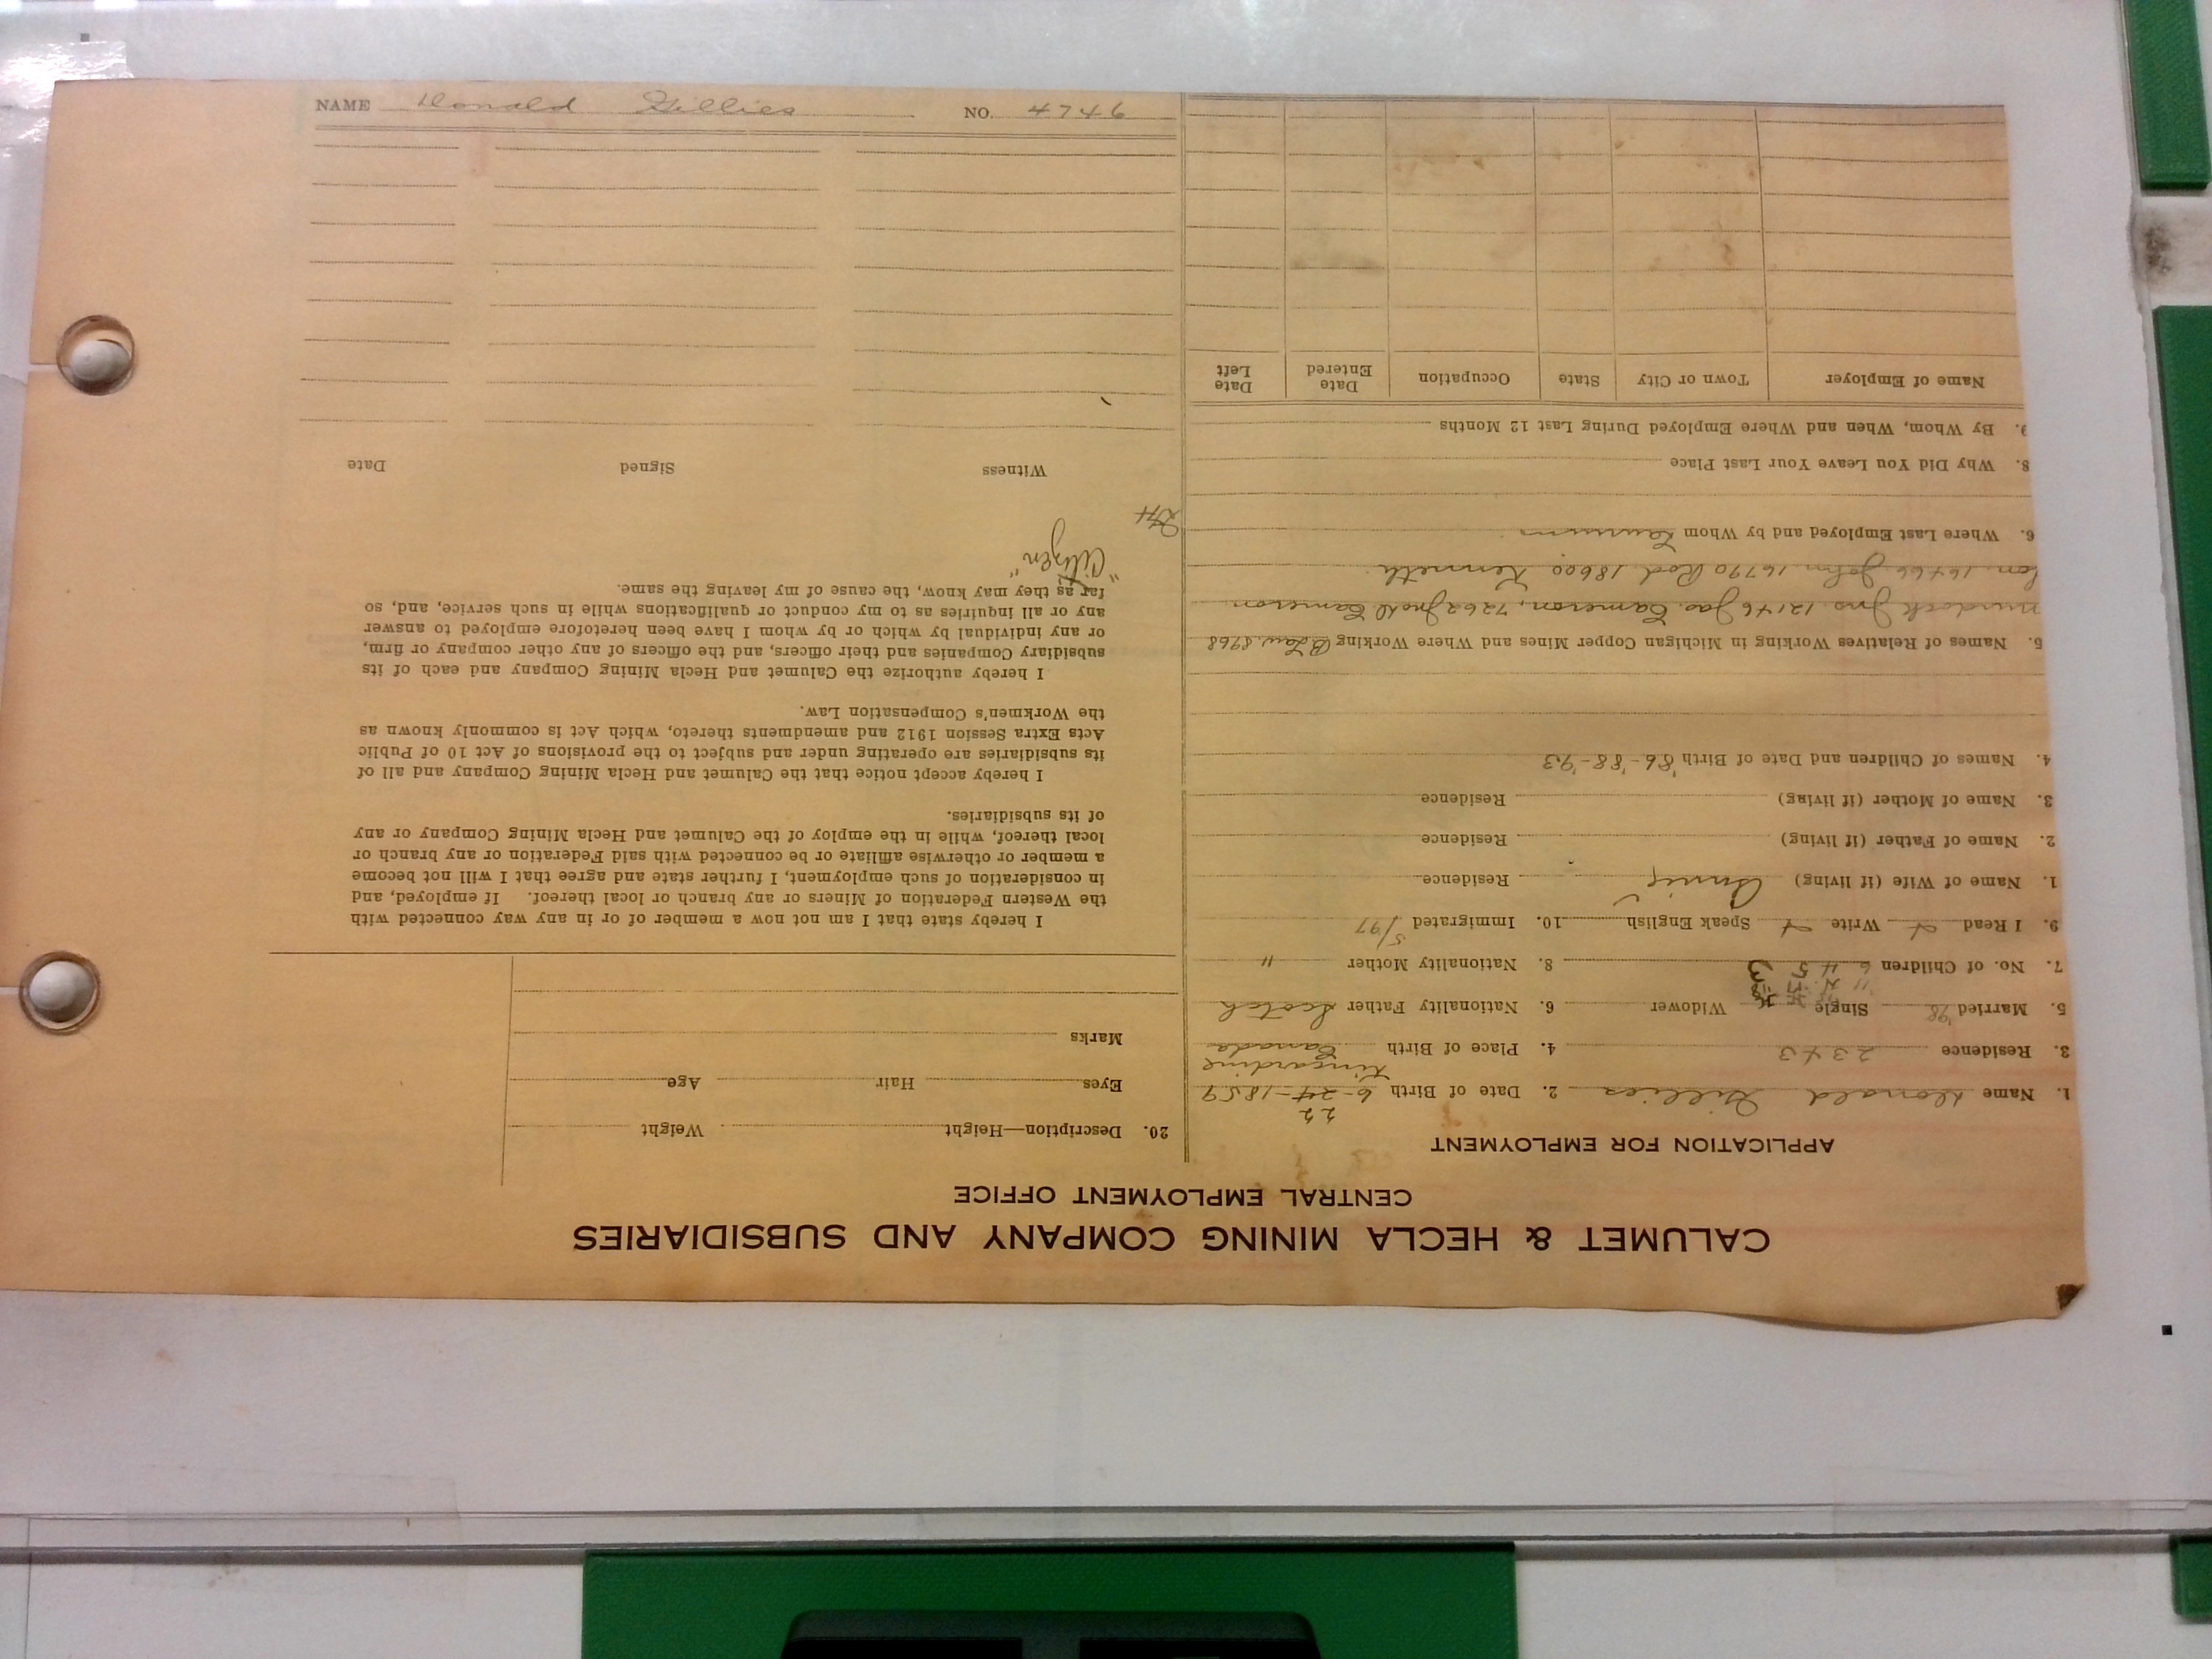 NAME Donald Gillies NO. 4746
CALUMET & HECLA MINING COMPANY AND SUBSIDIARIES
CENTRAL EMPLOYMENT OFFICE
APPLICATION FOR EMPLOYMENT
1. Name Donald Gillies 2. Date of Birth 6-24-1859
22
Kincardine
3. Residence 2343 4. Place of Birth Canada
5. Married '98 Single Widower 6. Nationality Father Scotch
7. No. of Children 6 4 5 3 8. Nationality Mother "
9. I Read Write Speak English 10. Immigrated 5/97
1. Name of Wife (if living) Annie Residence
2. Name of Father (if living) Residence
3. Name of Mother (if living) Residence
4. Names of Children and Date of Birth '86-'88-'93
5. Names of Relatives Working in Michigan Copper Mines and Where Working B Law 8968
Murdock Jno. 12146 Jas. Cameron, 7262 Cameron
Son, 16466 John 16790 Rod 18600 Kenneth
6. Where Last Employed and by Whom Laurium
8. Why Did You Leave Your Last Place
9. By Whom, When and Where Employed During Last 12 Months
Name of Employer Town or City State Occupation Date Entered Date Left
20. Description—Height Weight
Eyes Hair Age
Marks
I hereby state that I am not now a member of or in any way connected with
the Western Federation of Miners or any branch or local thereof. If employed, and
in consideration of such employment, I further state and agree that I will not become
a member or otherwise affiliate or be connected with said Federation or any branch or
local thereof, while in the employ of the Calumet and Hecla Mining Company or any
of its subsidiaries.
I hereby accept notice that the Calumet and Hecla Mining Company and all of
its subsidiaries are operating under and subject to the provisions of Act 10 of Public
Acts Extra Session 1912 and amendments thereto, which Act is commonly known as
the Workmen's Compensation Law.
I hereby authorize the Calumet and Hecla Mining Company and each of its
subsidiary Companies and their officers, and the officers of any other company or firm,
or any individual by which or by whom I have been heretofore employed to answer
any or all inquiries as to my conduct or qualifications while in such service, and, so
far as they may know, the cause of my leaving the same.
"Citizen"
Witness Signed Date